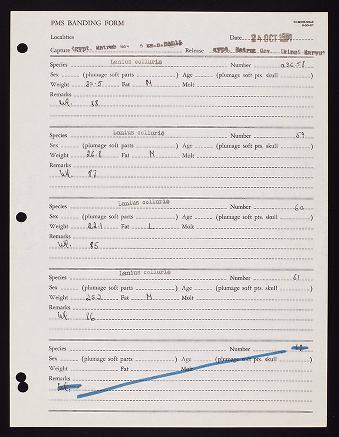 PMS BANDING FORM
Localities Date 24 OCT
Capture Egypt. Matruh Gov. Release Egypt. Matruh Gov.
Species Lanius collurio Number 03658
Sex (plumage soft parts ) Age (plumage soft pts. skull )
Weight Fat M Molt
Remarks
Wl. 88
Species Lanius collurio Number 59
Sex (plumage soft parts ) Age (plumage soft pts. skull )
Weight 26.8 Fat M Molt
Remarks
Wl. 87
Species Lanius collurio Number 60
Sex (plumage soft parts ) Age (plumage soft pts. skull )
Weight 22.1 Fat L Molt
Remarks
Wl. 85
Species Lanius collurio Number 61
Sex (plumage soft parts ) Age (plumage soft pts. skull )
Weight 25.2 Fat M Molt
Remarks
Wl. 86
Species Number
Sex (plumage soft parts ) Age (plumage soft pts. skull )
Weight Fat Molt
Remarks
Wl.